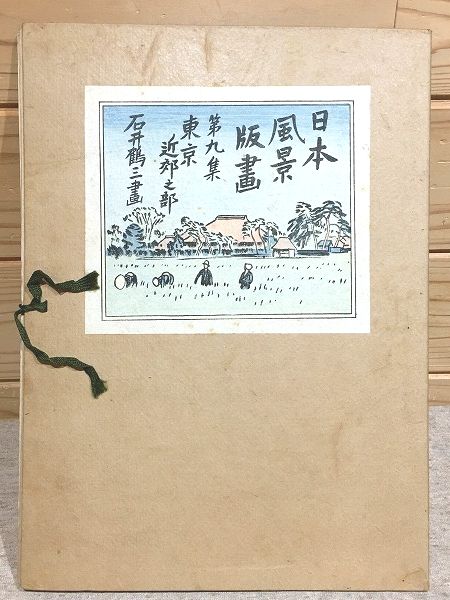 日本
風景
版畫
第九集
東京
近郊之部
石井鶴三畫